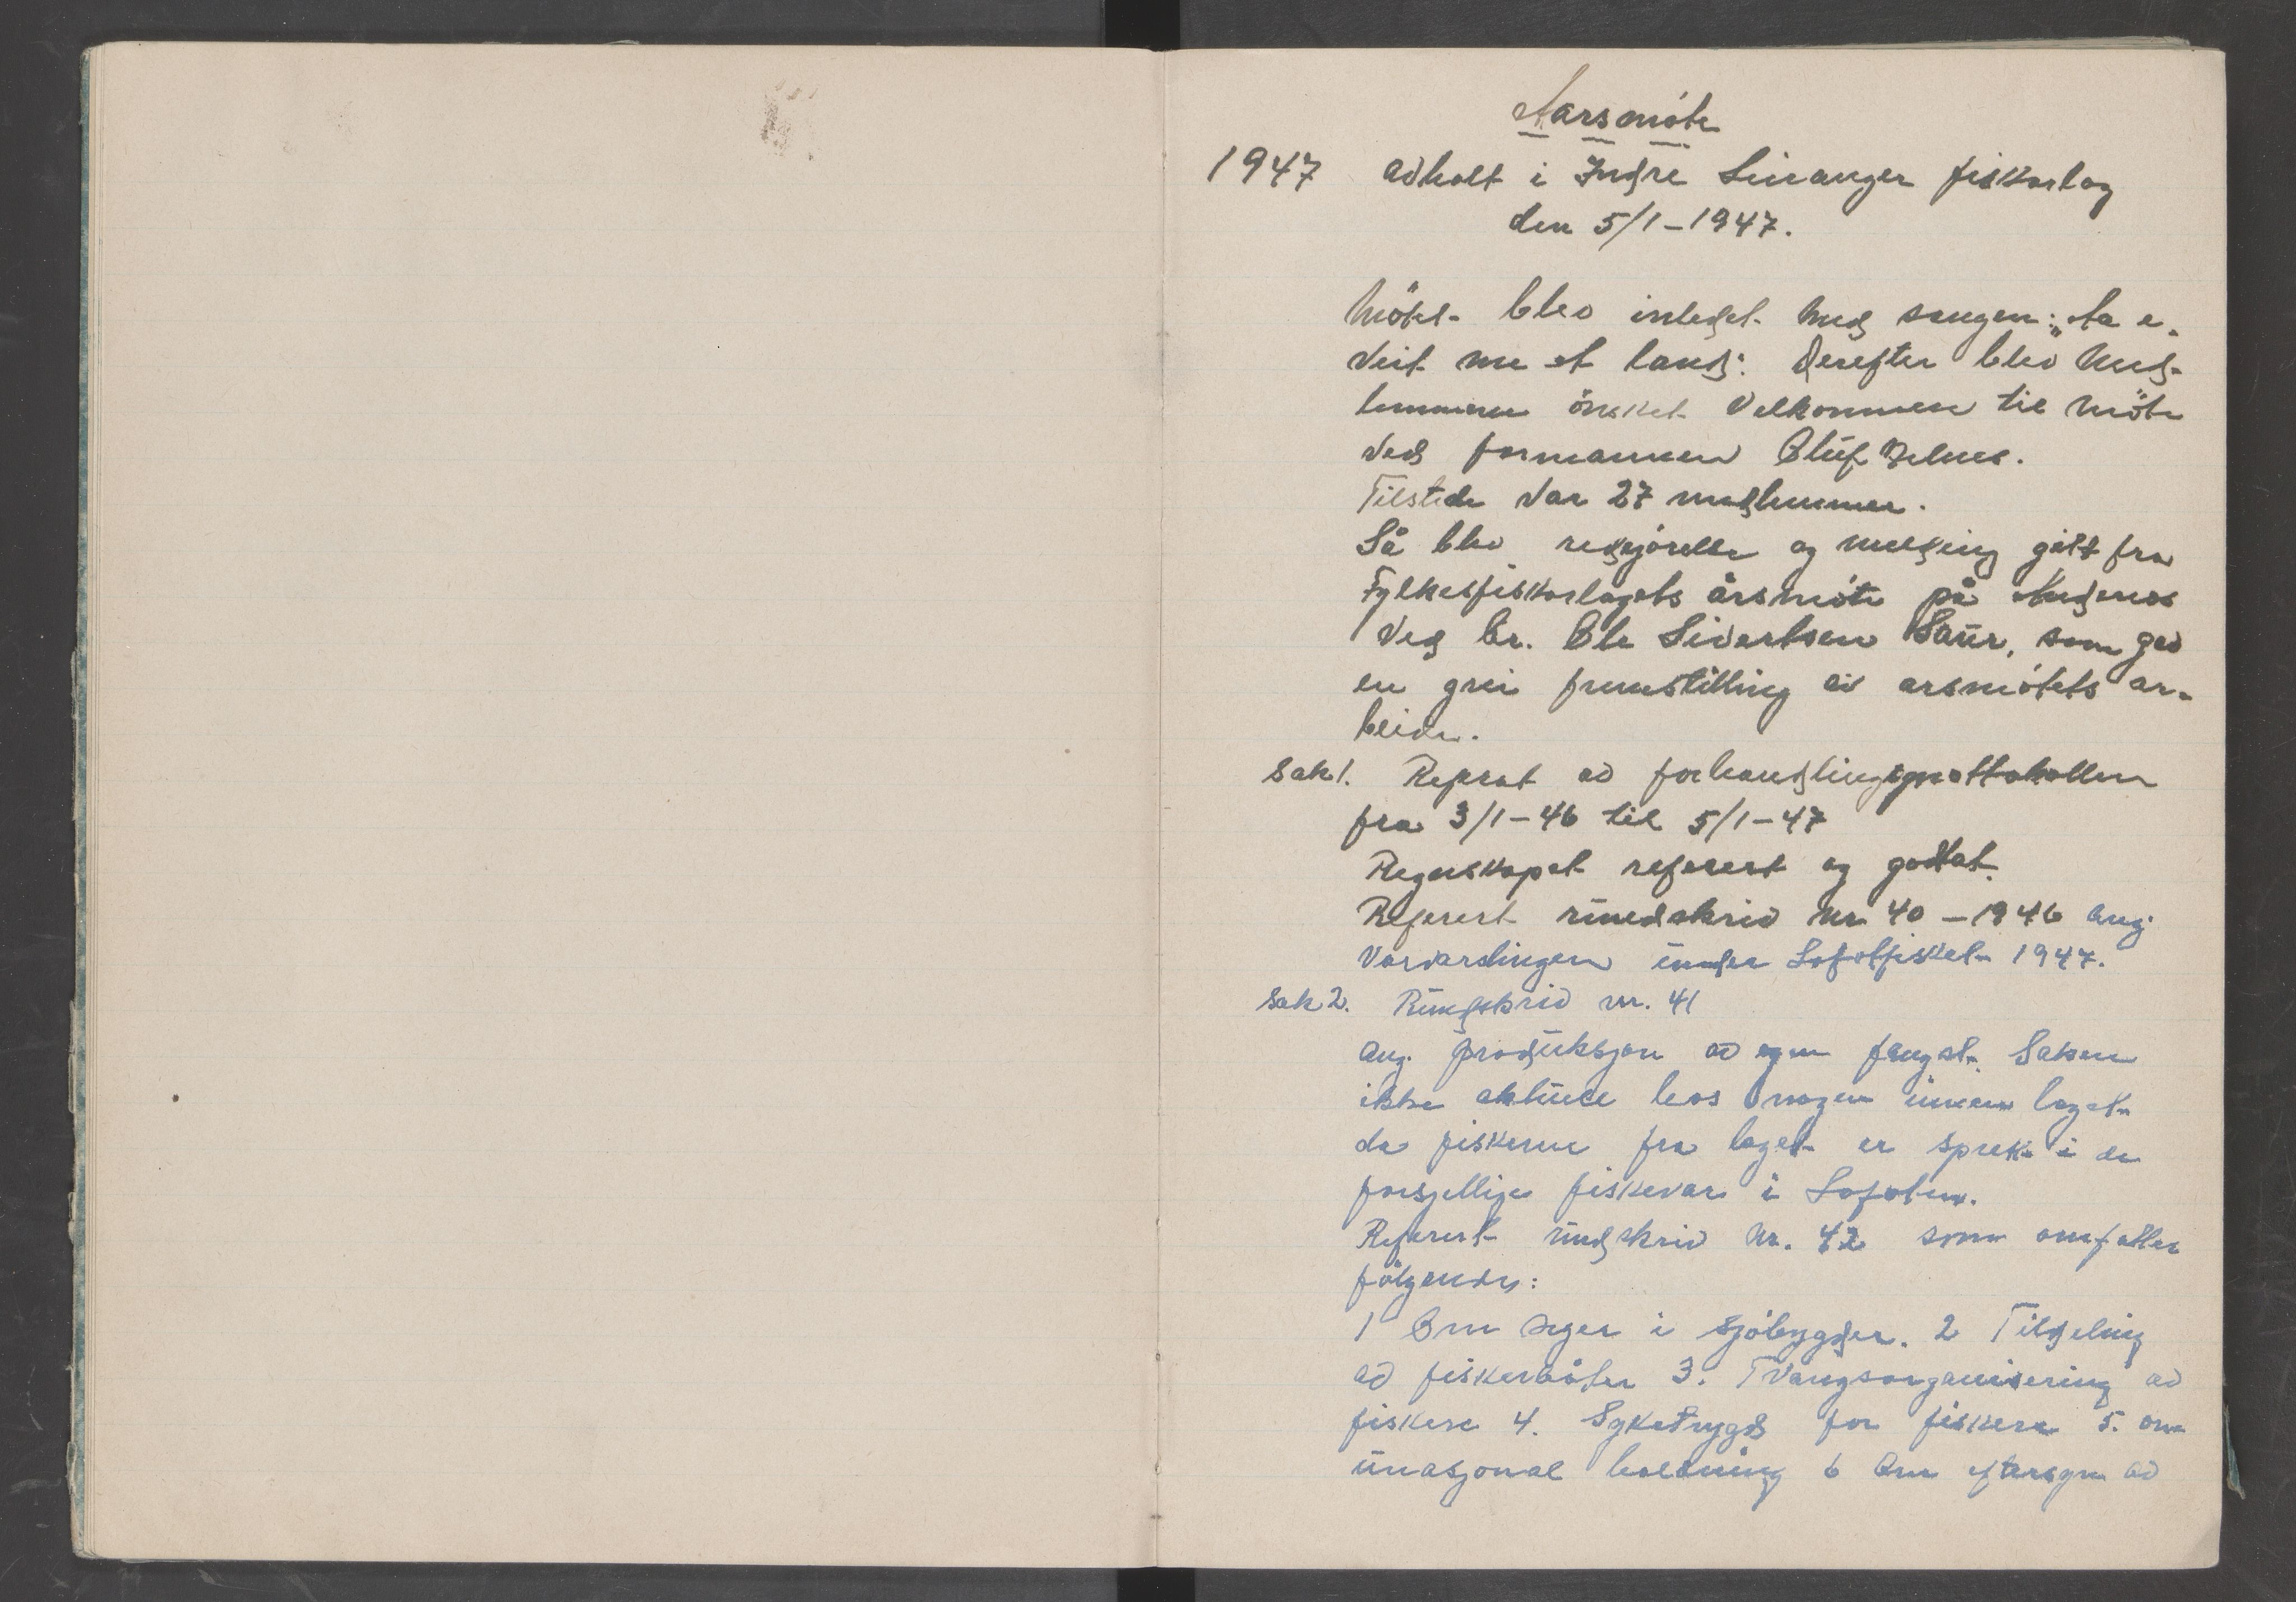 Aarsmöte
1947 avholt i Indre Sieranger fiskarlag
den 5/1-1947.
Mötet blev inledet med sangen: „Aa e„
veit me et land". Derefter blev med-
lemmene önsket velkommen til möte
ved formannen Oluf
Tilstede var 27 medlemmer.
Så blev redgjörelse og melding gitt fra
Fylkesfiskarlagets årsmöte på Andenes
ved hr. Ole Sivertsen Saur, som gav
en grei fremstilling av arsmötets ar-
beide.
Sak 1. Reprat av forhandlingsprottokollen
fra 3/1-46 til 5/1-47
Regnskapet referert og godtat.
Referert runedskriv nr 40 -1946 ang.
under Lofotfisket 1947.
Sak 2. Rundskriv nr. 41
ang. produksjon av egen fangst. Saken
ikke aktuell hos nogen innen laget
da fiskerne fra laget er sprett i de
forsjellige fiskevær i Lofoten.
Referert rundskriv nr. 42 som omfatter
fölgende:
1 Om veger i sjöbygder. 2 Tildeling
av fiskerbåter 3. Tvangsorganisering av
fiskere 4. Syketrygd for fiskere 5. om
unasjonal holdning 6 Om eftersyn av